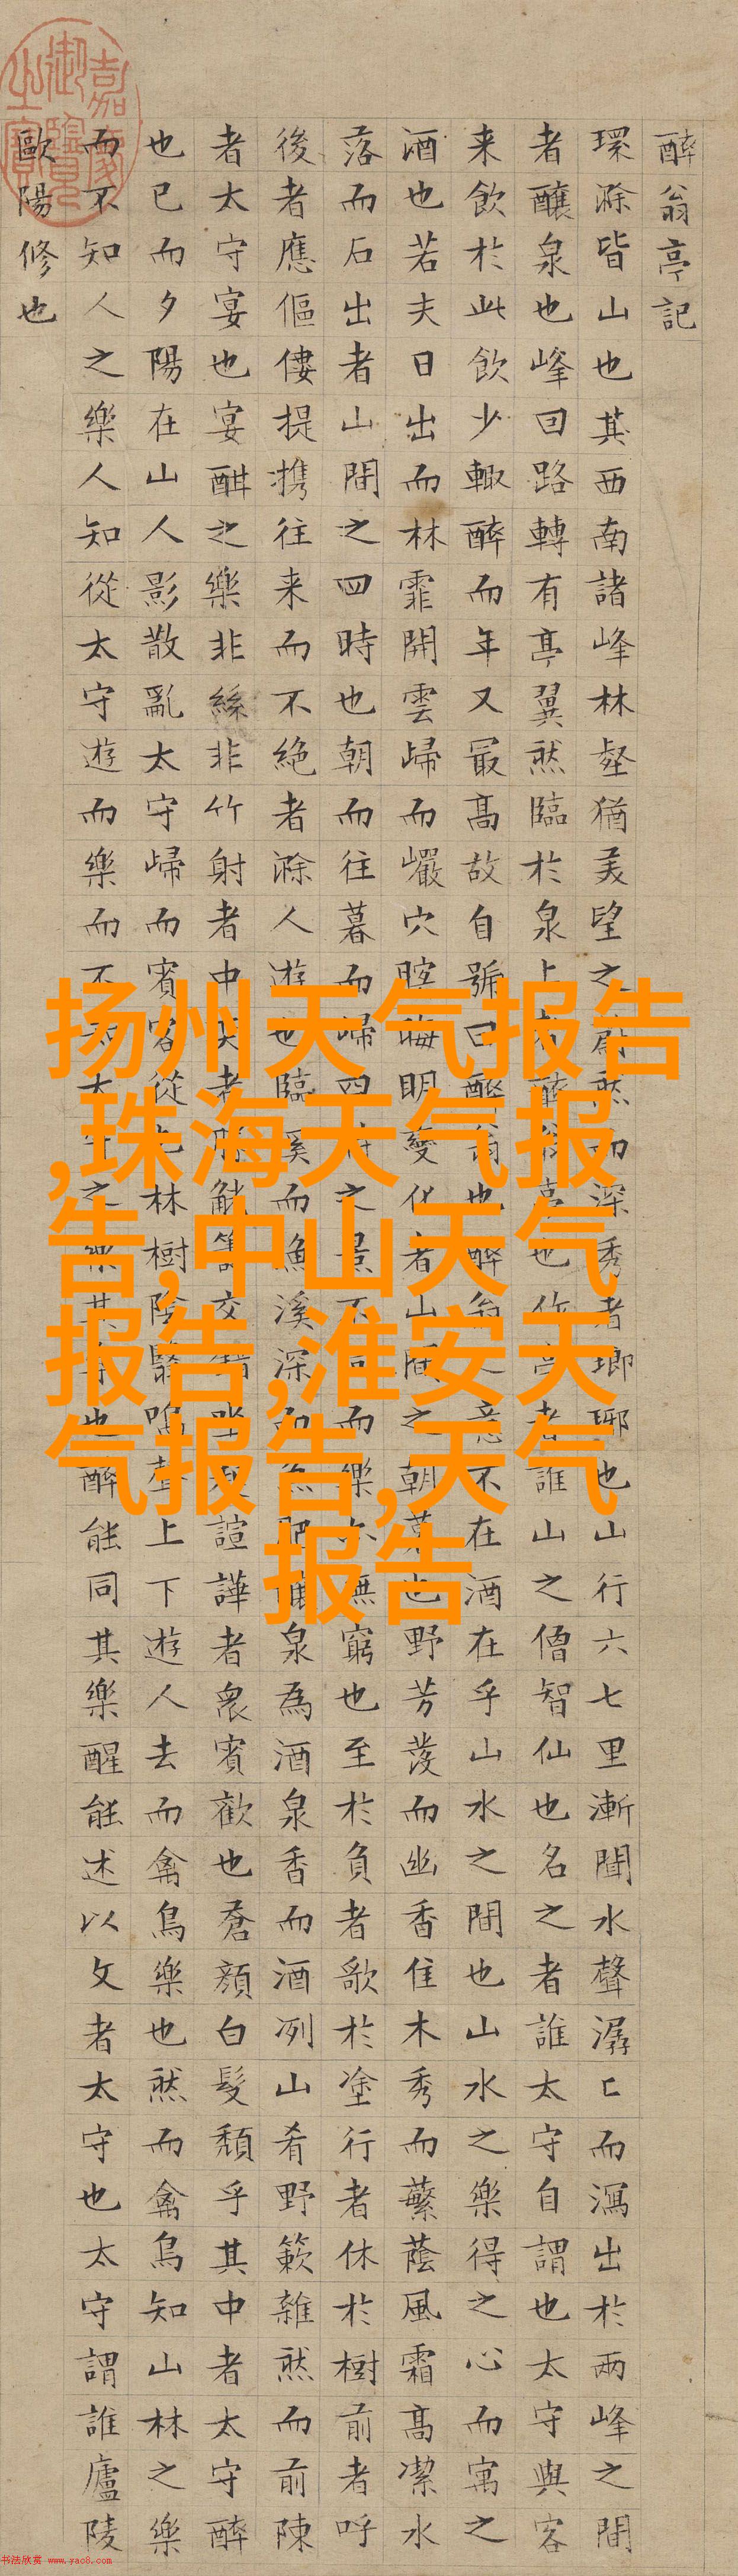 醉翁亭記
環滁皆山也其西南諸峰林壑猶美望之蔚然而深秀者瑯琊也山行六七里漸聞水聲潺〻而瀉出於兩峰之間
者釀泉也峰回路轉有亭翼然臨於泉上者醉翁亭也作亭者誰山之僧智仙也名之者誰太守自謂也太守與客
来飲於此飲少輙醉而年又最高故自號曰醉翁也醉翁之意不在酒在乎山水之間也山水之樂得之心而寓之
酒也若夫日出而林霏開雲歸而巖穴暝晦明變化者山間之朝暮也野芳發而幽香佳木秀而蘩蔭風霜高潔水
落而石出者山間之四時也朝而往暮而歸四時之景不同而樂亦無窮也至於負者歌於塗行者休於樹前者呼
後者應傴僂提携往来而不絕者滁人遊也臨溪而漁溪深而魚肥釀泉為酒泉香而酒冽山肴野簌雜然而前陳
者太守宴也宴酣之樂非絲非竹射者中奕者勝觥籌交錯坐起諠譁者衆賓歡也蒼顏白髮頹乎其中者太守醉
也已而夕陽在山人影散亂太守歸而賓客從也林樹陰翳鳴聲上下遊人去而禽鳥樂也然而禽鳥知山林之樂
而不知人之樂人知從太守遊而樂而不知太守之樂其樂也醉能同其樂醒能述以文者太守也太守謂誰廬陵
歐陽修也
嘉慶御覽之寶
扬州天气报告
,珠海天气报
告,中山天气
报告,淮安天
气报告,天气
报告
书法欣赏 www.yac8.com